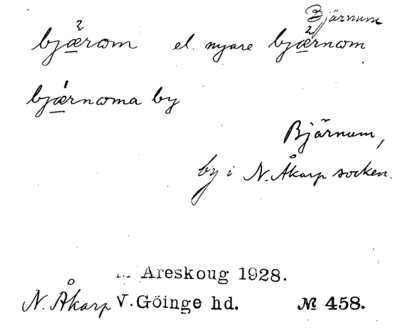 Bjärnum
bjærom el. nyare bjærnom
bjærnoma by
Bjärnum,
by i N. Åkarp socken.
Areskoug 1928.
N. Åkarp V. Göinge hd. № 458.